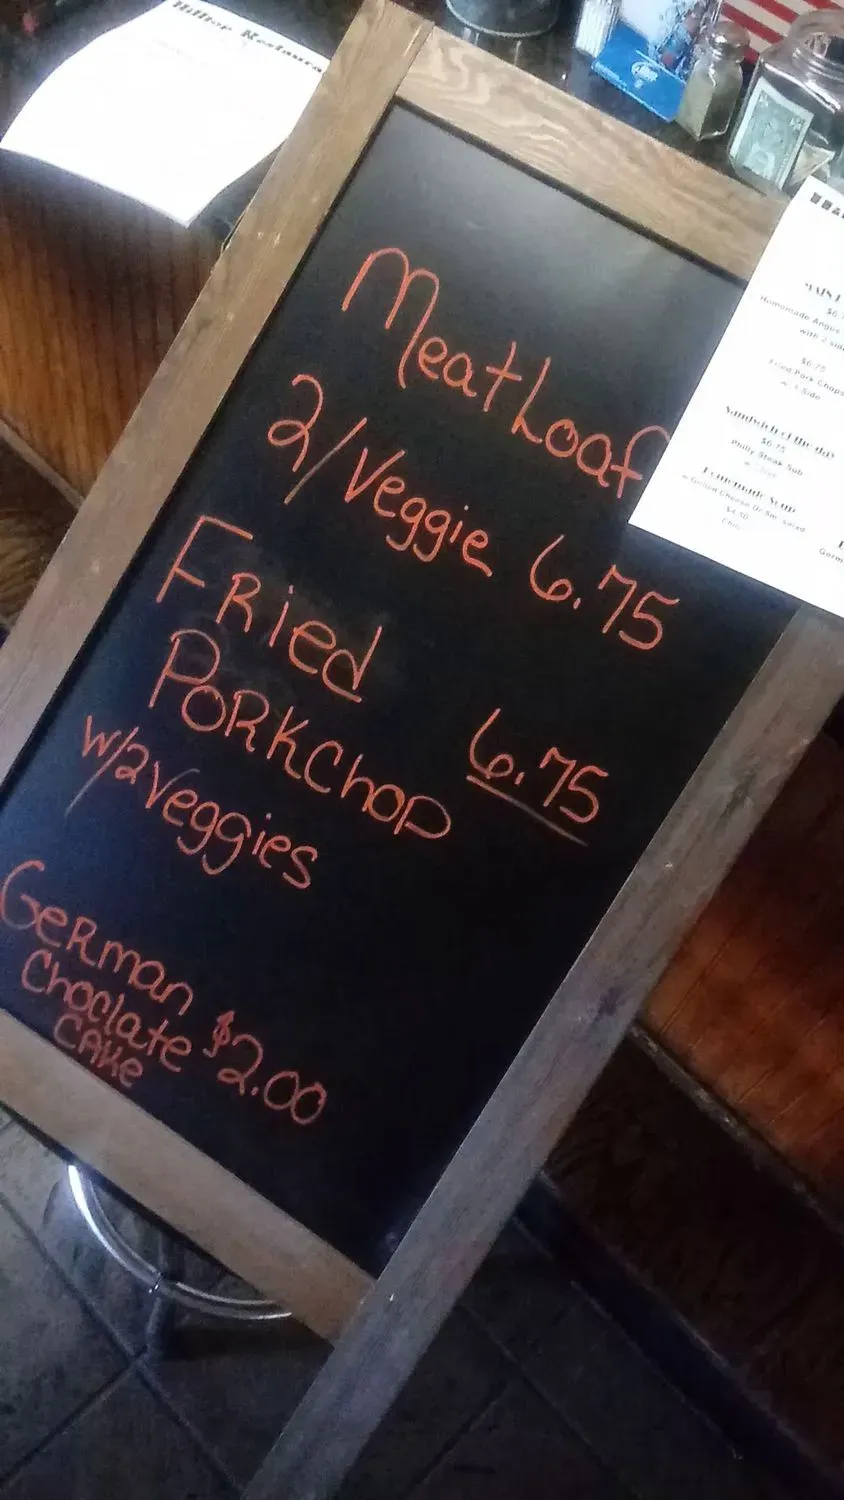 Hilltop Restaura
MeatLoaf
2/Veggie 6.75
FRied
PORKChop 6.75
w/2Veggies
GeRman
Choclate $2.00
CAKe
Homemade Angus
with 2 side
$6.75
Fried Pork Chops
w. 1 Side
Sandwich of the day
$6.75
Philly Steak Sub
Homemade Soup
w Grilled Cheese Or Sm. Salad
$4.50
Chili
Germ